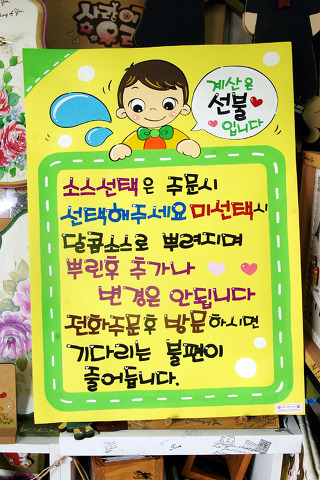 계산은
선불
입니다
소스선택은 주문시
선택해주세요 미선택시
달콤소스로 뿌려지며
뿌린후 추가나
변경은 안됩니다
전화주문후 방문하시면
기다리는 불편이
줄어듭니다.